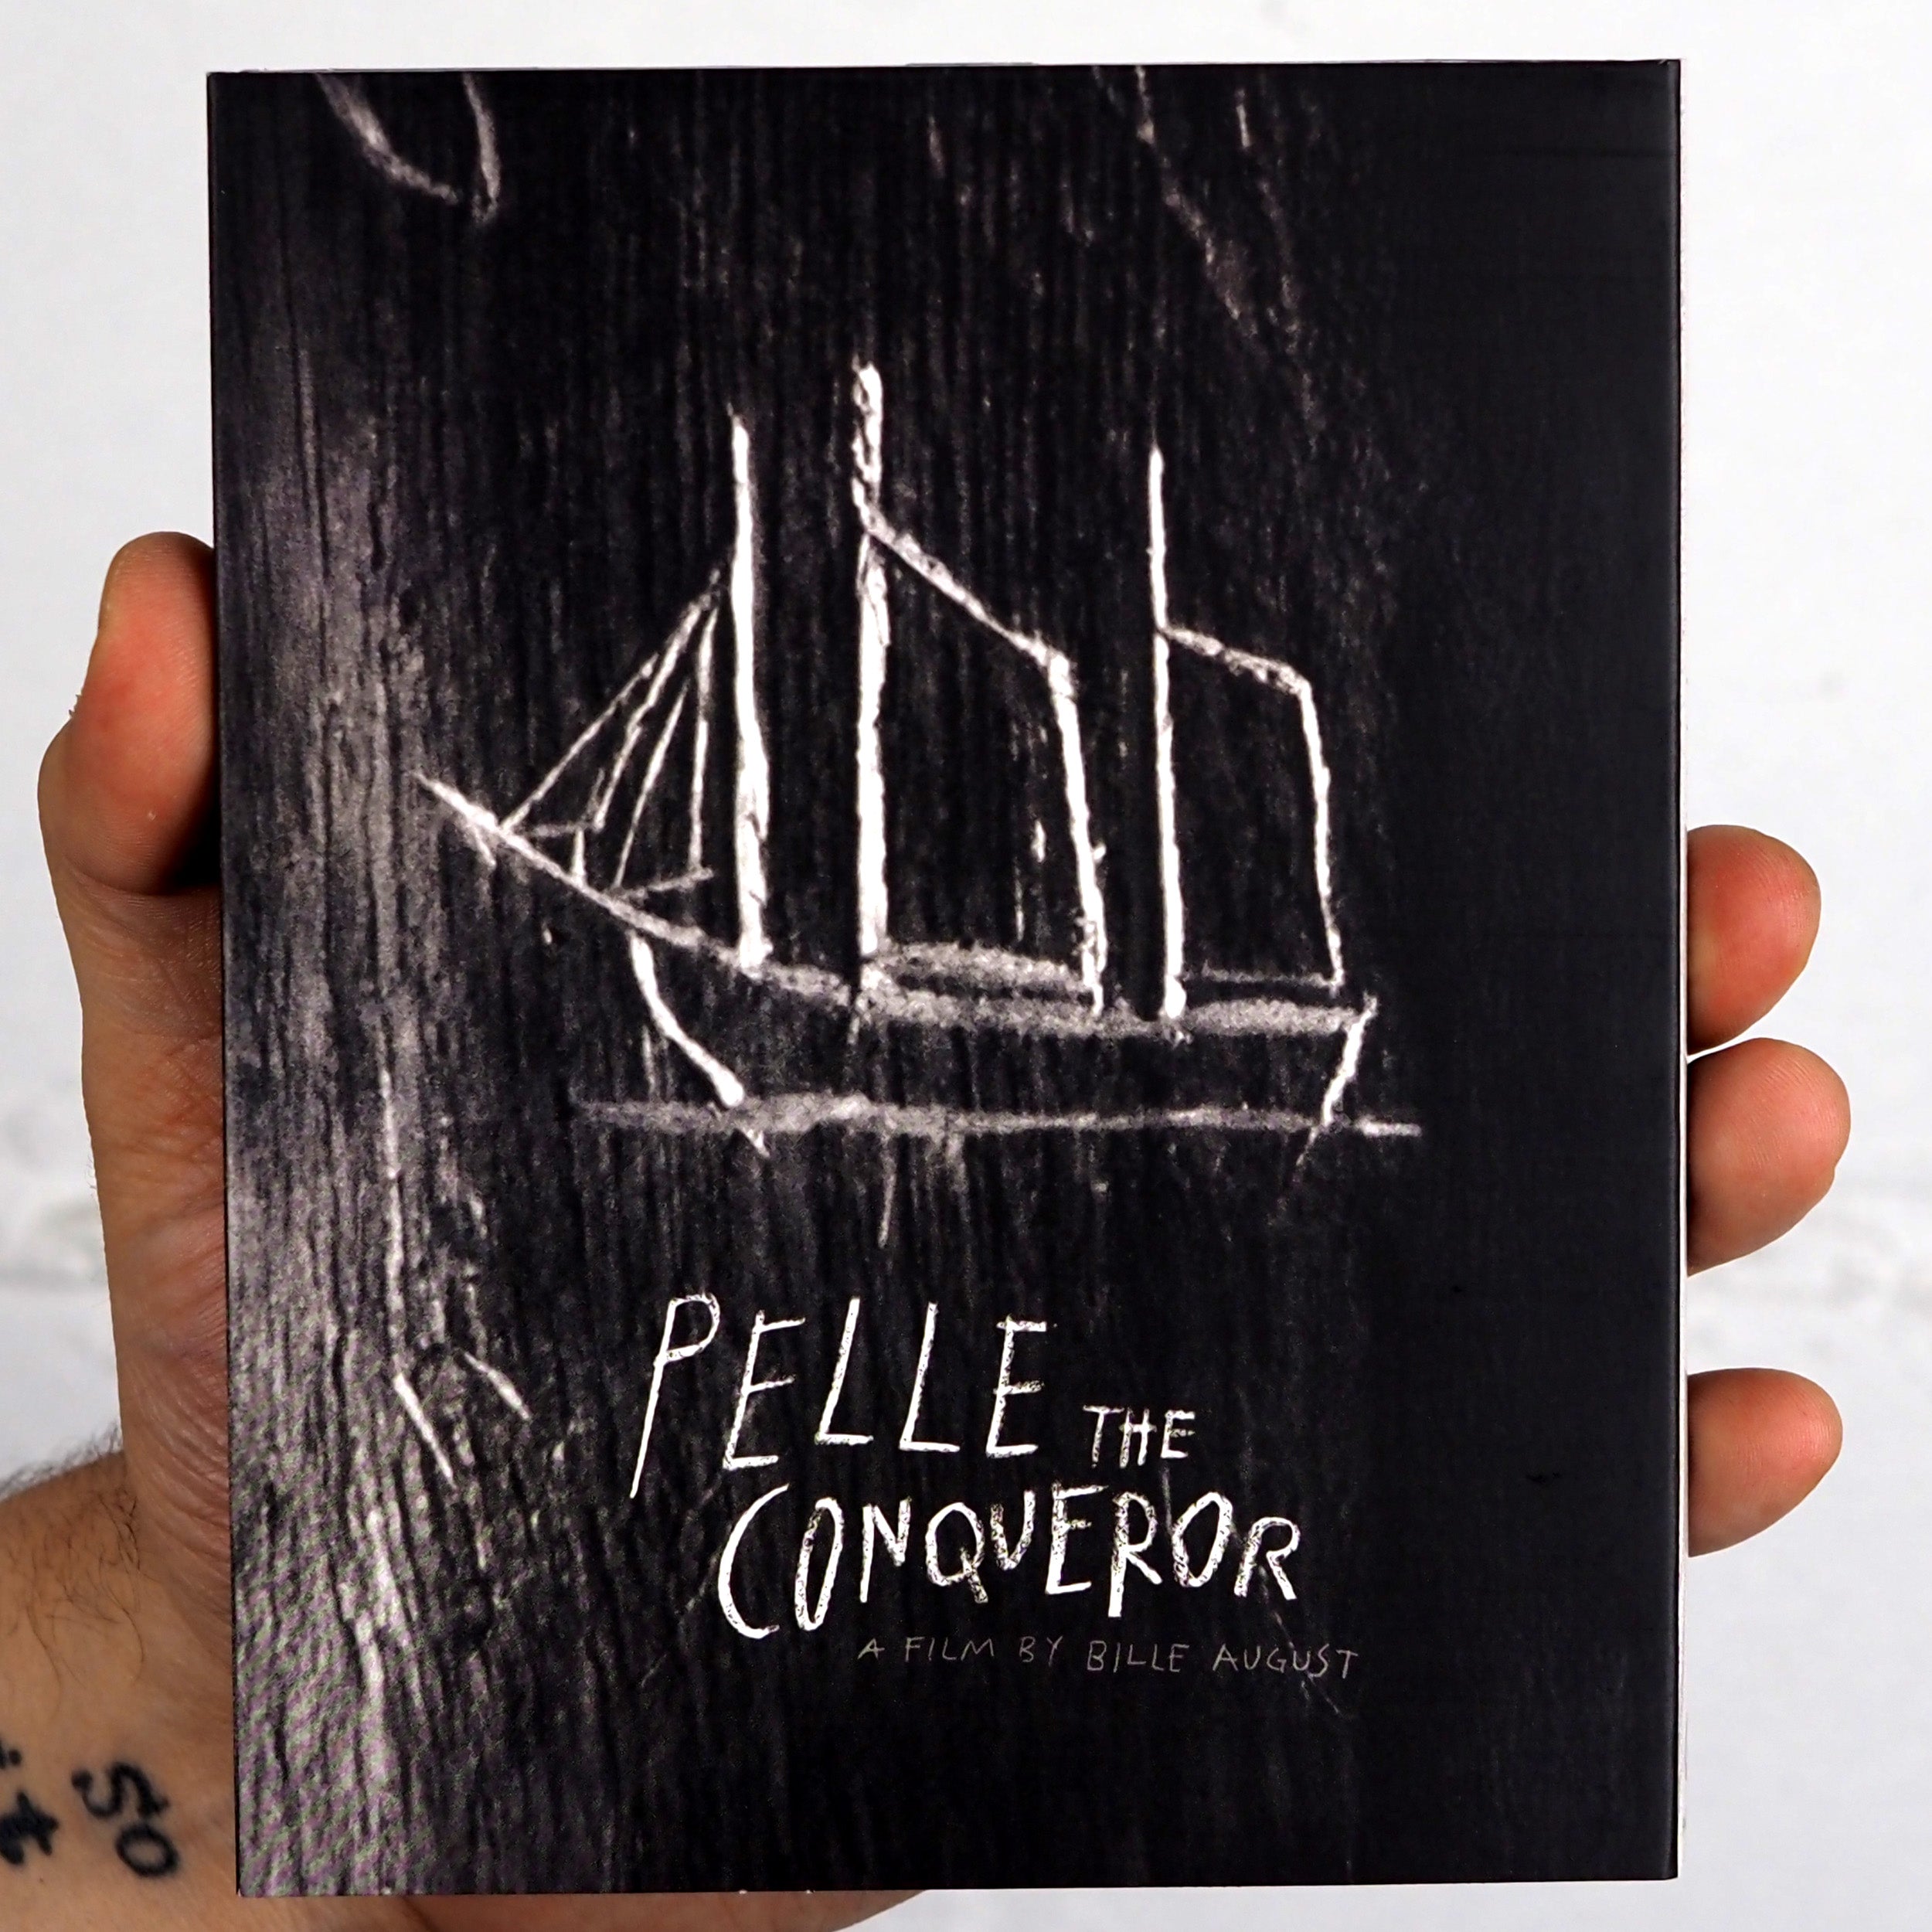 PELLE THE
CONQUEROR
A FILM BY BILLE AUGUST
so